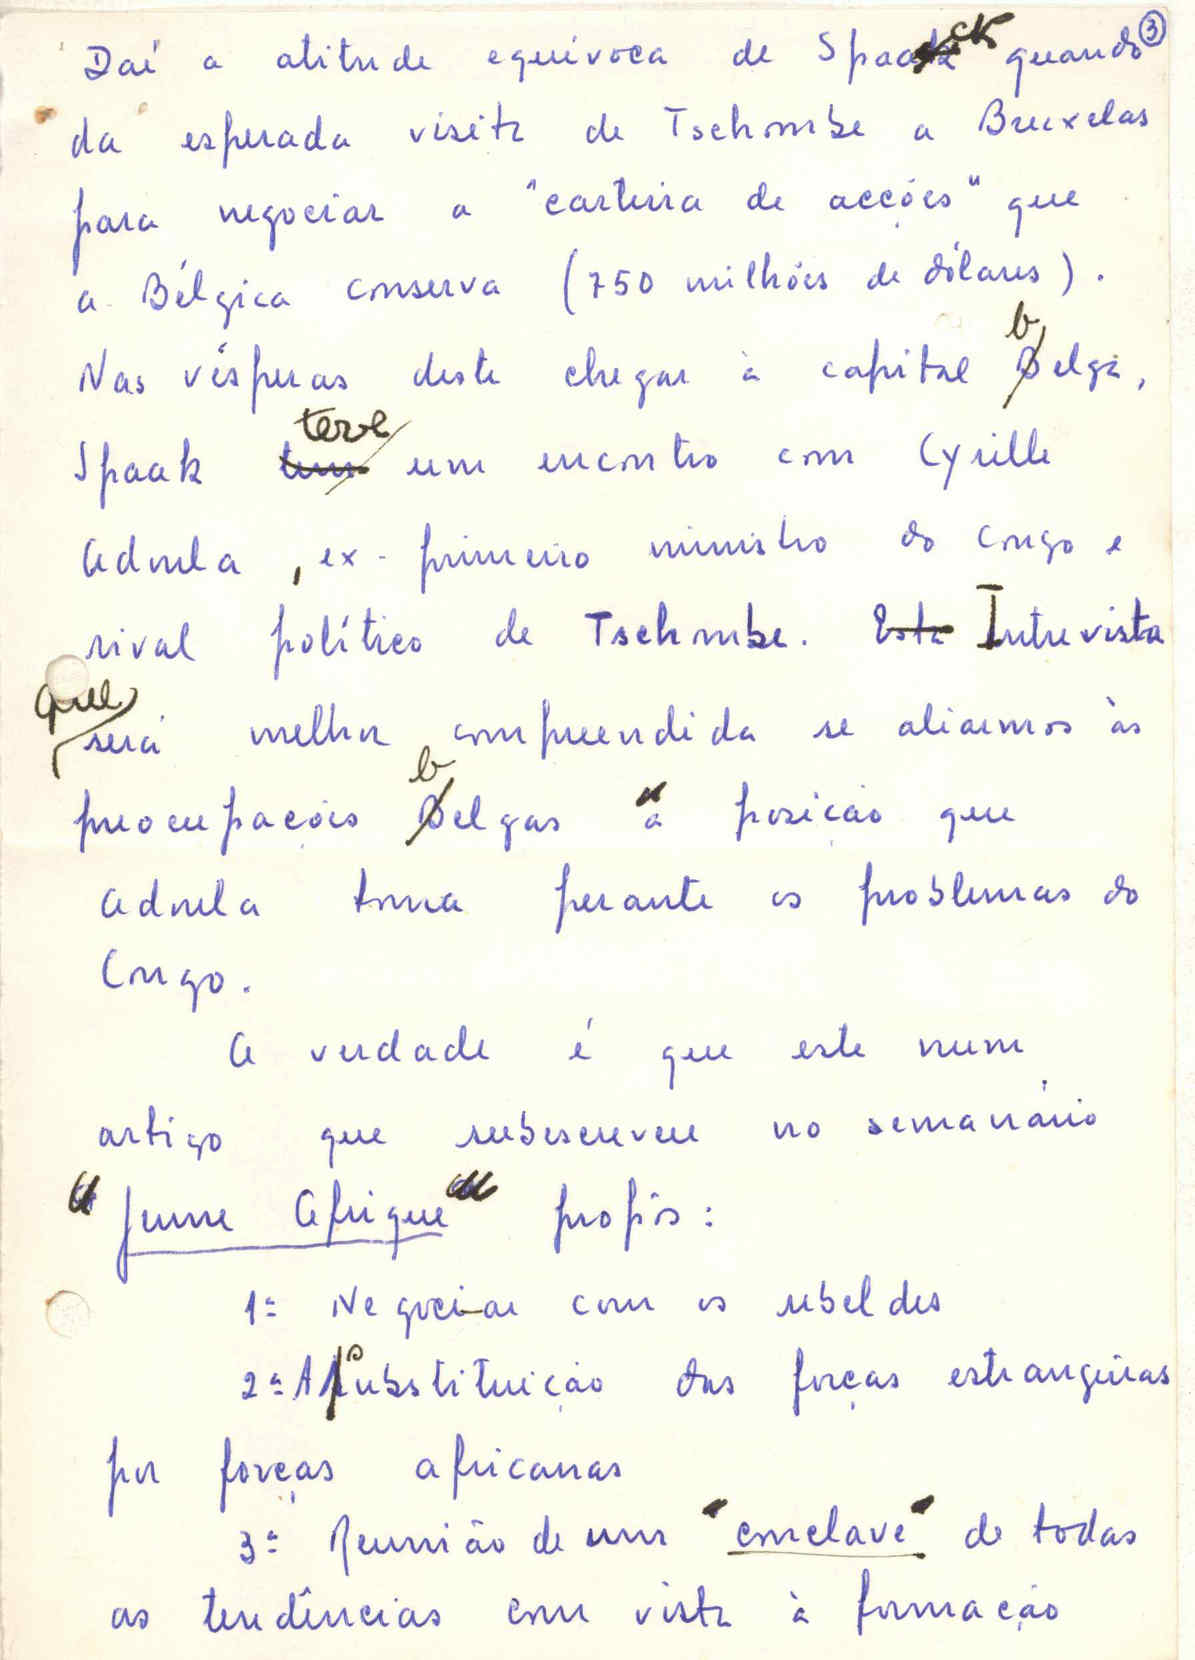 3
Daí a atitude equívoca de Spaack quando
da esperada visita de Tschombe a Bruxelas
para negociar a "carteira de acções" que
a Bélgica conserva (750 milhões de dólares).
Nas vésperas deste chegar à capital belga,
Spaak teve um encontro com Cyrille
Adoula, ex-primeiro ministro do Congo e
rival político de Tschombe. Esta Intrevista
que será melhor compreendida se aliarmos às
preocupações belgas a posição que
Adoula toma perante os problemas do
Congo.
A verdade é que este num
artigo que subescreveu no semanário
"Jeune Afrique" propôs:
1º Negociar com os rebeldes
2º A substituição das forças estrangeiras
por forças africanas
3º Reunião de um "conclave" de todas
as tendências com vista à formação